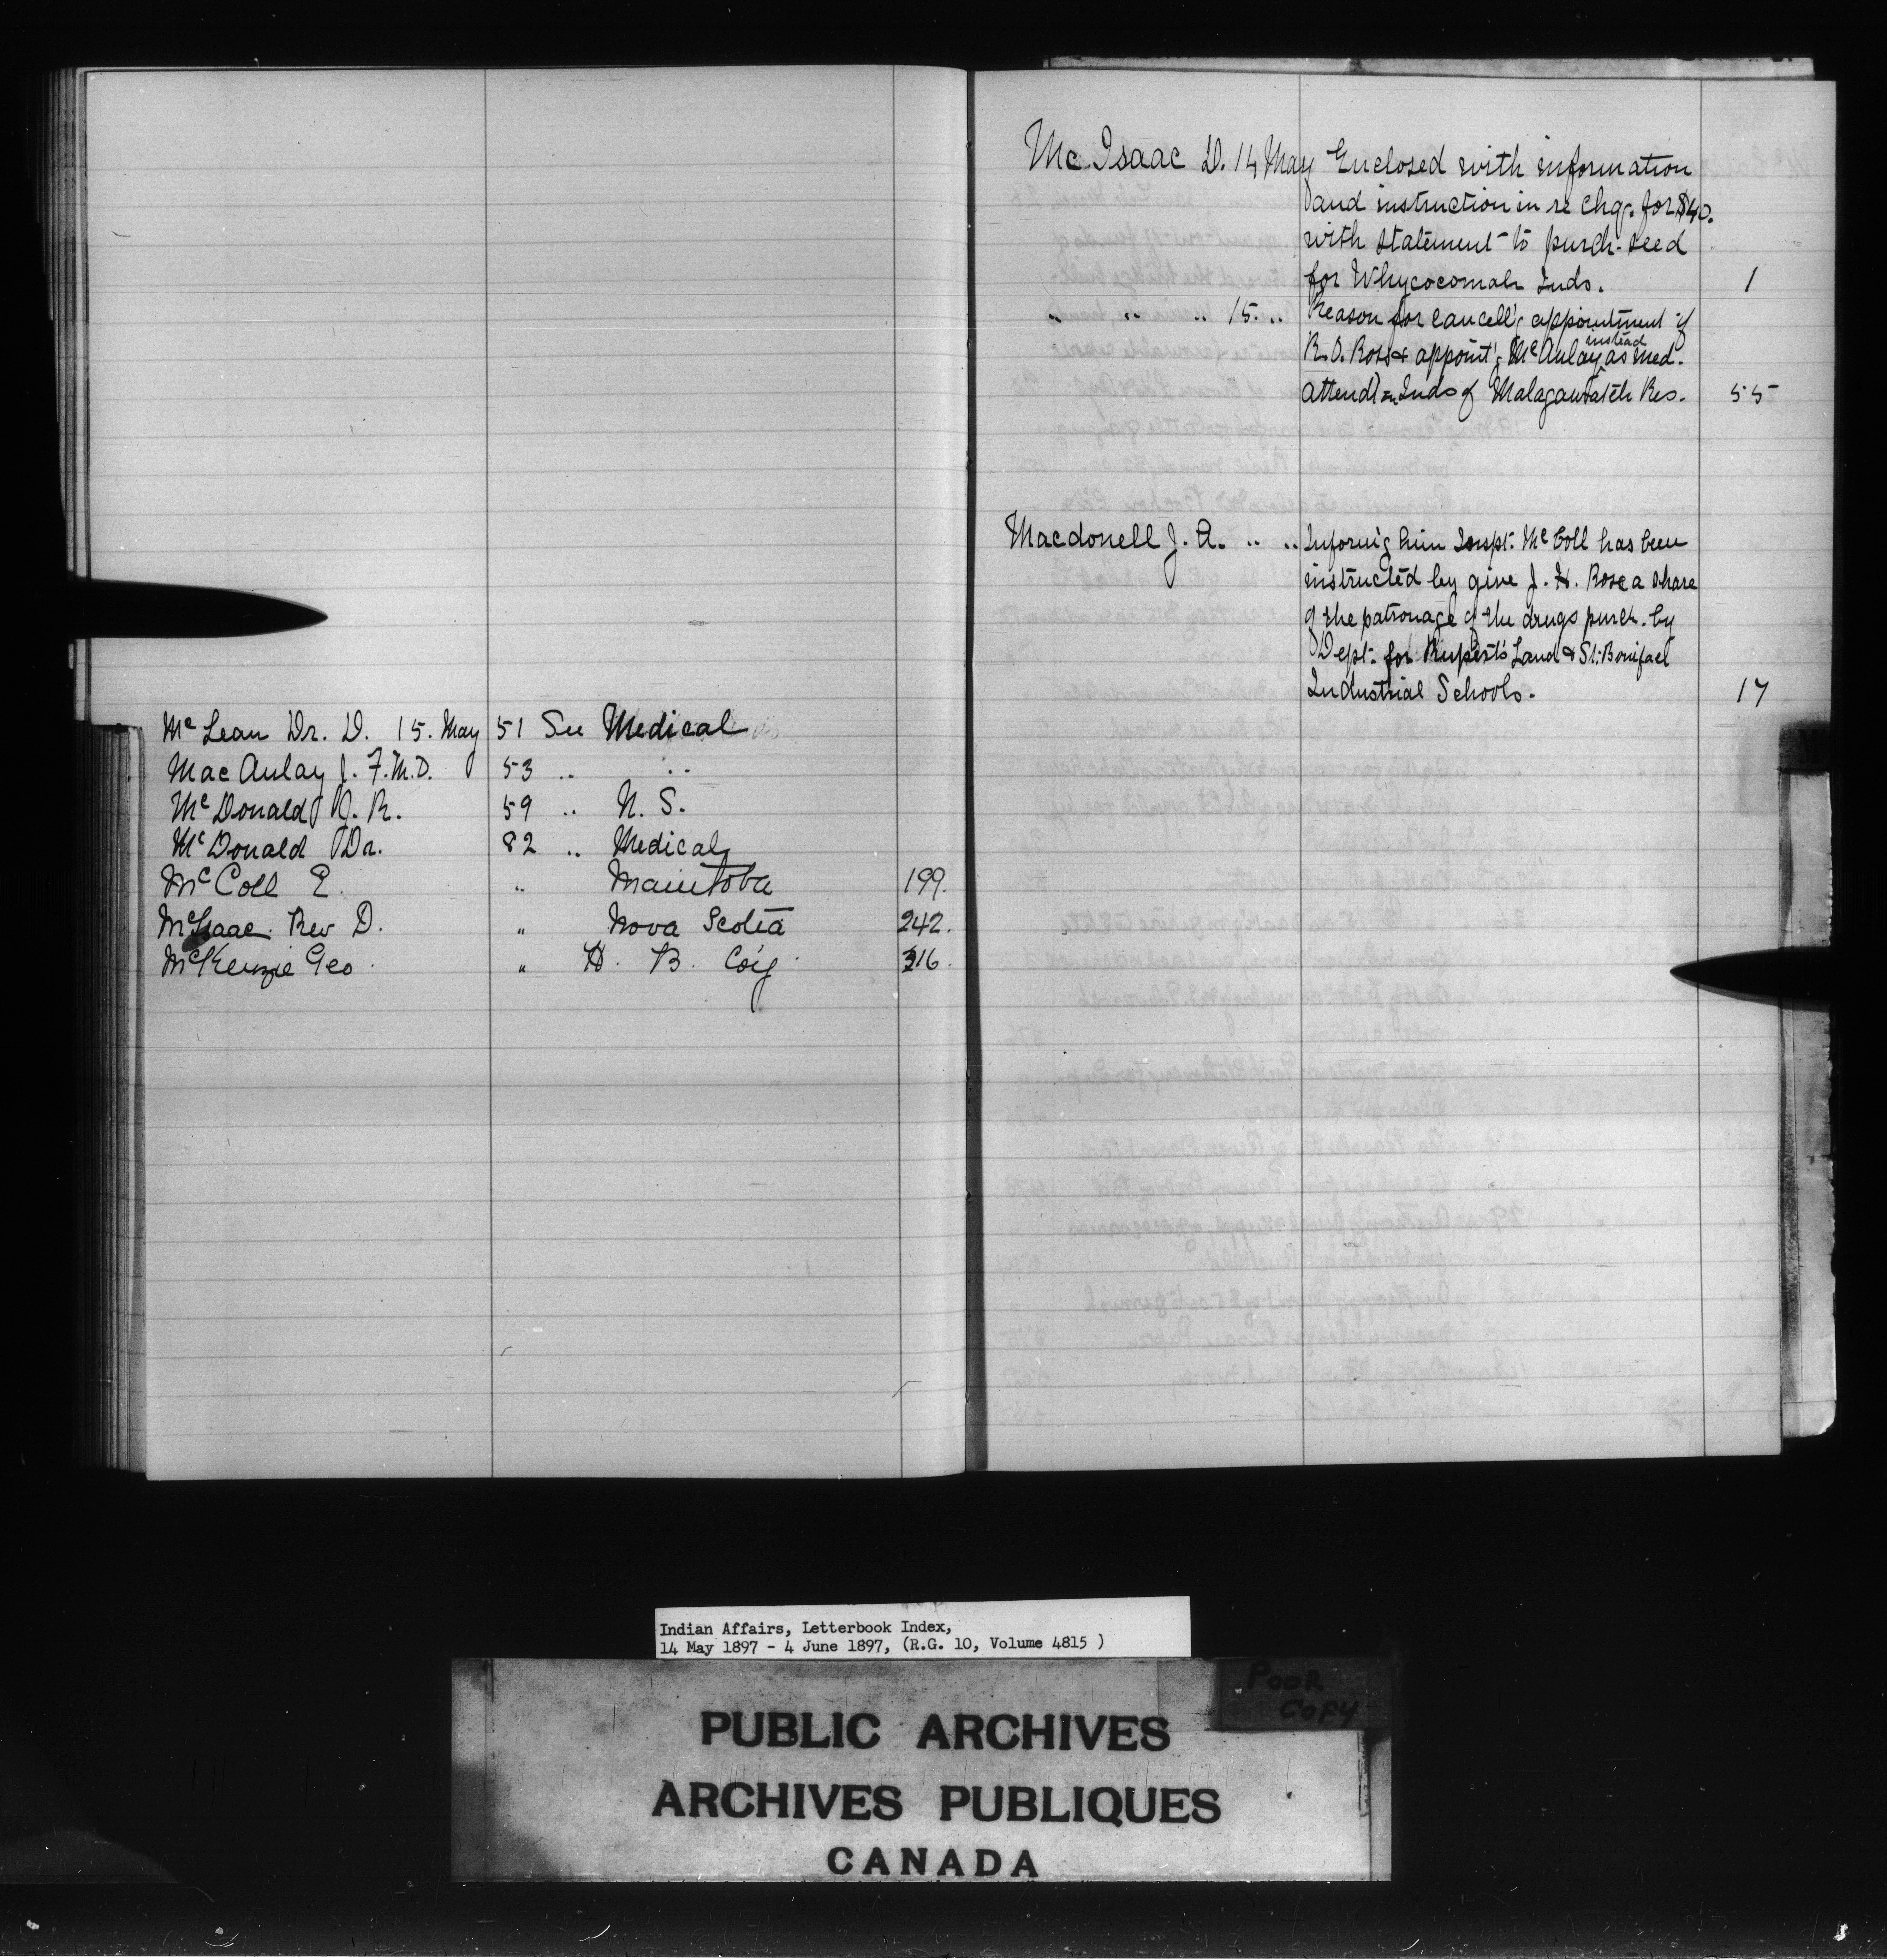 McLean Dr. D. 15. May 51 See Medical
MacAulay J. F. M.D. 53 .. ..
McDonald A. R. 59 .. N. S.
McDonald Dr. 82 .. Medical
McColl E. " Manitoba 199.
McIsaac Rev D. " Nova Scotia 242.
McKenzie Geo. " H. B. Co'y 316.
McIsaac D. 14 May Enclosed with information
and instruction in re chq. for $40.
with statement to purch. seed
for Whycocomah Inds. 1
.. .. .. 15. .. Reason for cancell'g appointment of
instead
R. D. Ross & appoint'g McAulay as med.
attendt on Inds of Malagawatch Res. 55
Macdonell J. A. .. .. Inform'g him Inspt. McColl has been
instructed by give J. H. Rose a share
of the patronage of the drugs purch. by
Dept. for Rupert's Land & St. Boniface
Industrial Schools. 17
Indian Affairs, Letterbook Index,
14 May 1897 - 4 June 1897, (R.G. 10, Volume 4815 )
POOR
COPY
PUBLIC ARCHIVES
ARCHIVES PUBLIQUES
CANADA